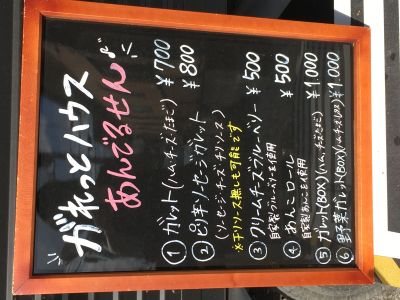 がれっとハウス
あんでるせん♪
① ガレット(ハム・チーズ・たまご) ¥700
② ピリ辛ソーセージガレット ¥800
(ソーセージ・チーズ・チリソース)
※チリソース無しも可能です
③ クリームチーズブルーベリー ¥500
自家製ブルーベリーを使用
④ あんこロール ¥500
自家製あんこを使用
⑤ ガレット(BOX)(ハム、チーズ、たまご) ¥1,000
⑥ 野菜ガレット(BOX)(ハム、チーズ、レタス) ¥1,000